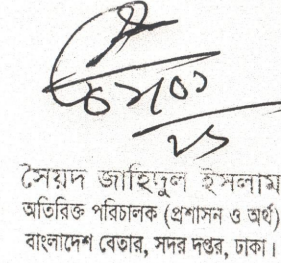 সৈয়দ জাহিদুল ইসলাম
অতিরিক্ত পরিচালক (প্রশাসন ও অর্থ)
বাংলাদেশ বেতার, সদর দপ্তর, ঢাকা।